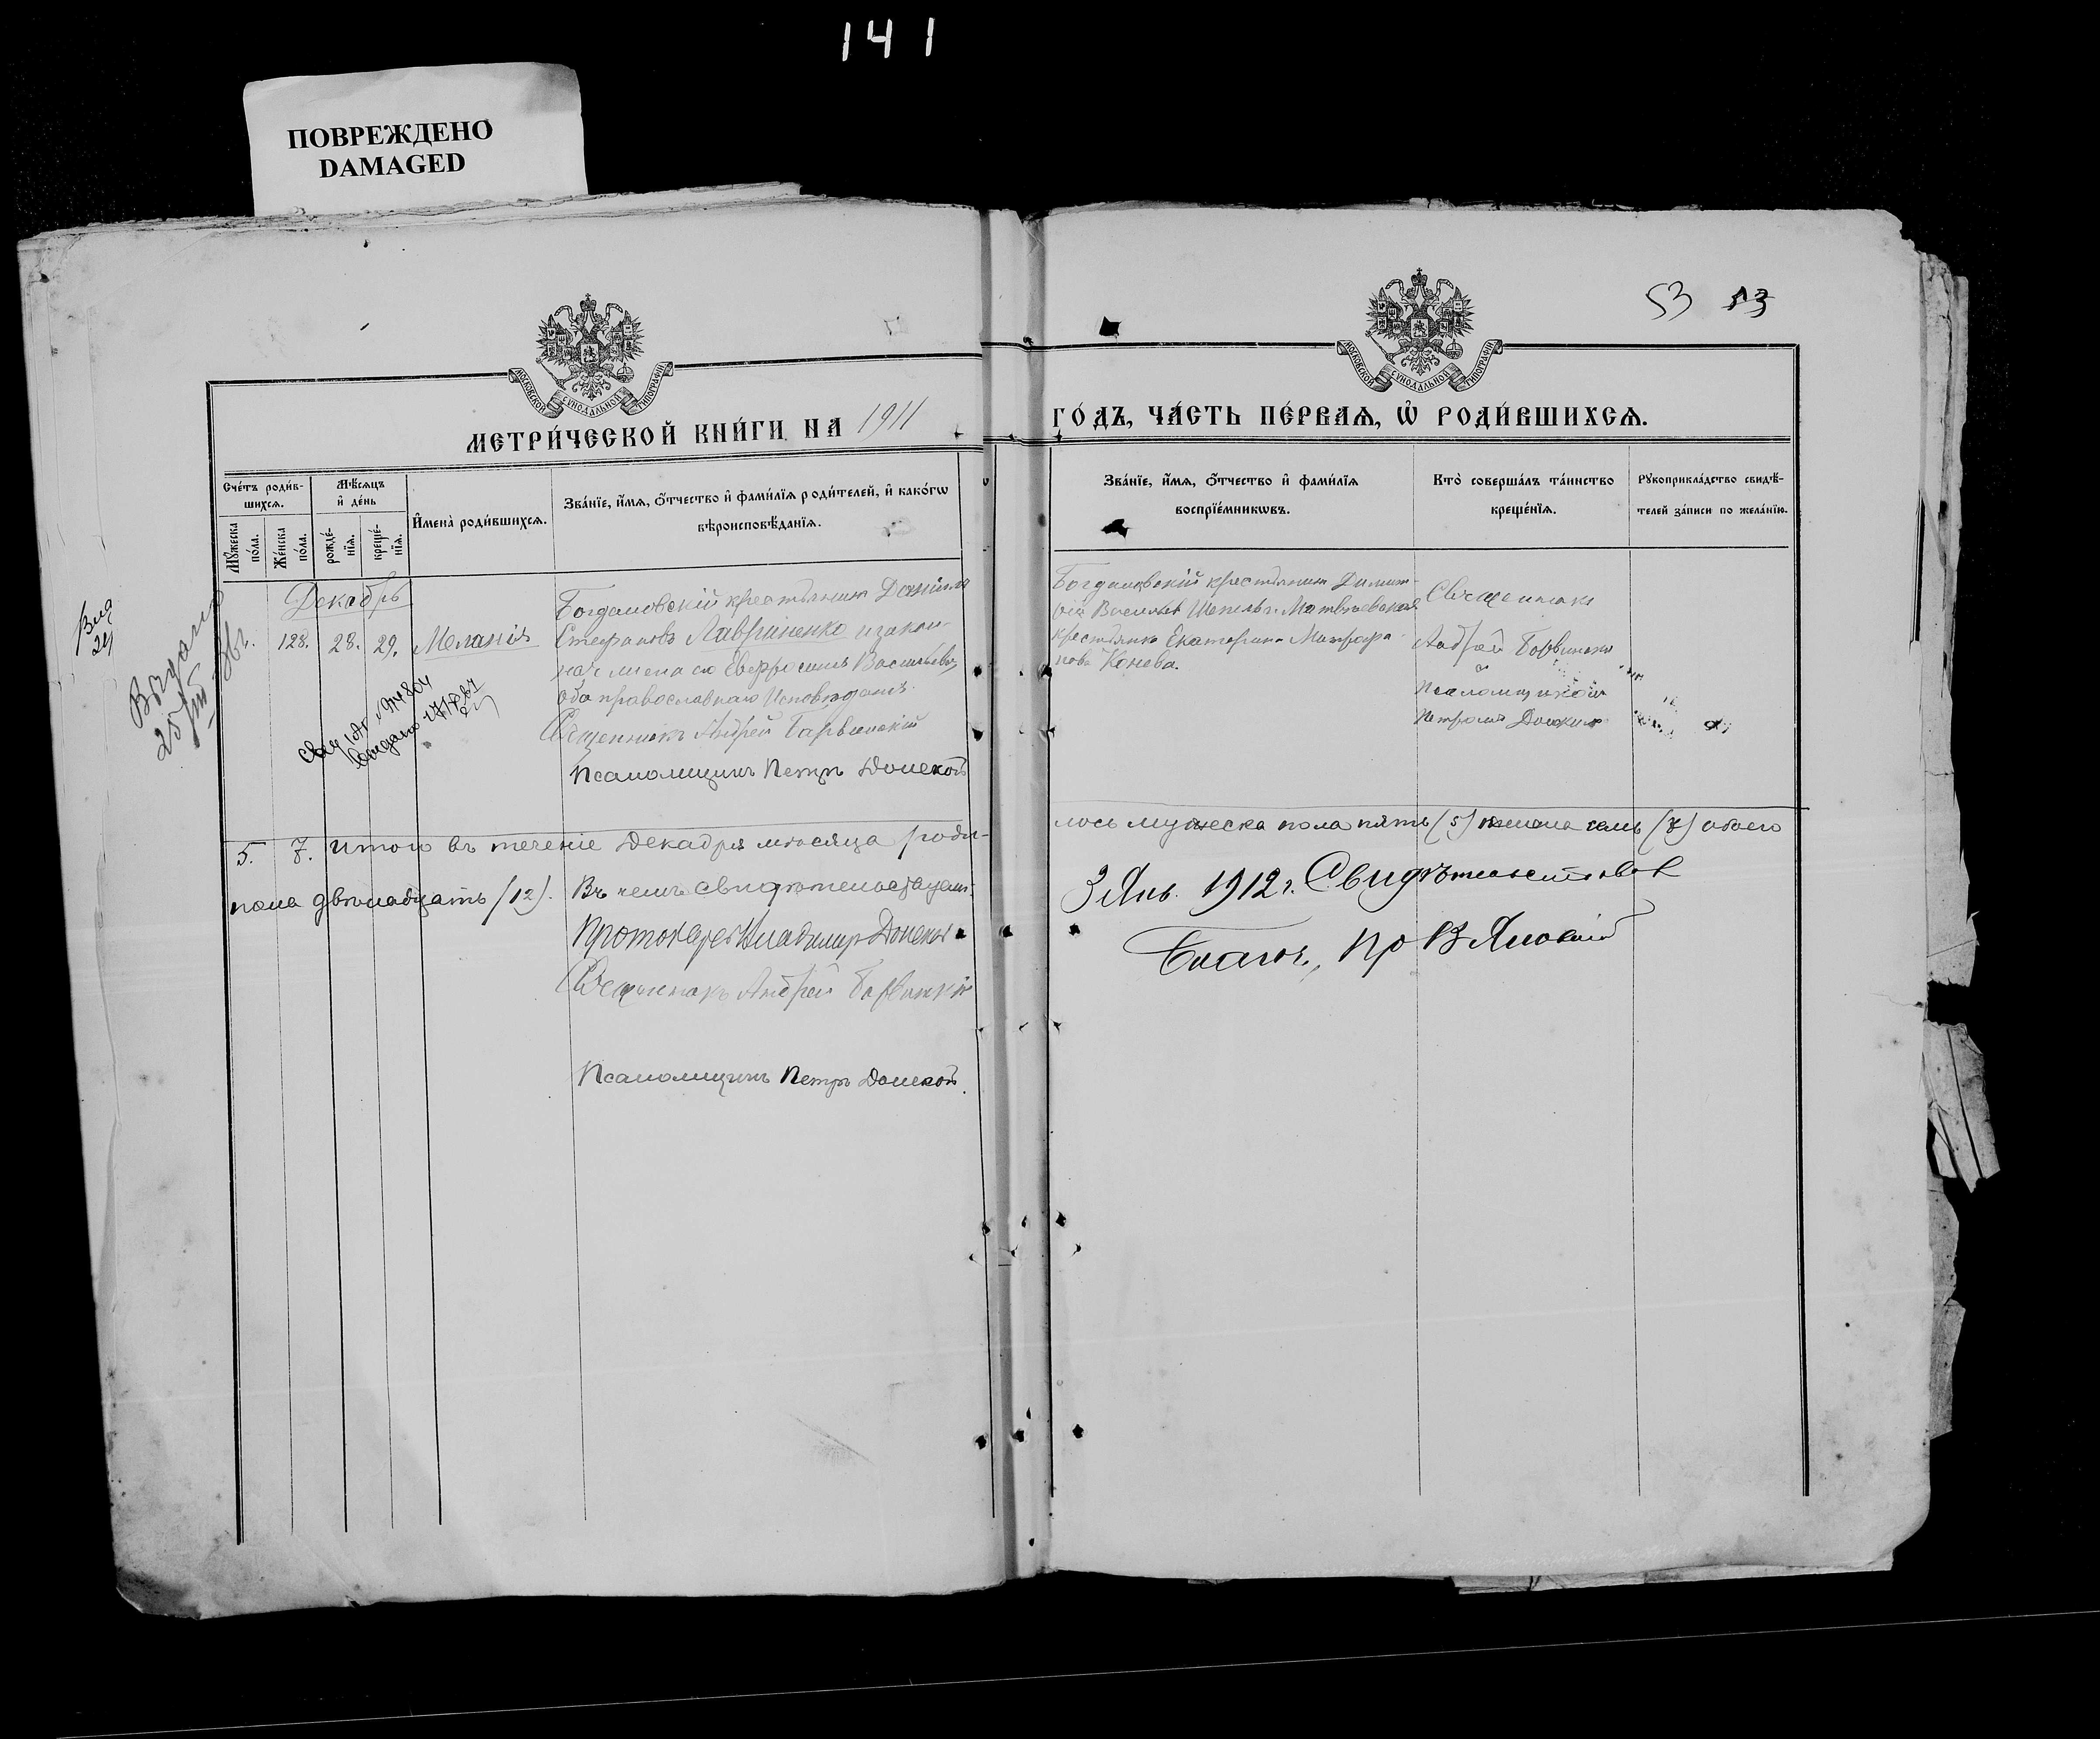 141
ПОВРЕЖДЕНО
DAMAGED
53 53
МОСКОВСКОЙ СУНОДАЛЬНОЙ ТИПОГРАФІИ
МОСКОВСКОЙ СУНОДАЛЬНОЙ ТИПОГРАФІИ
МЕТРИ́ЧЕСКОЙ КНИ́ГИ НА 1911
ГО́ДЪ, ЧА́СТЬ ПЕ́РВАѦ, Ѡ҆ РОДИ́ВШИХСѦ.
Сче́тъ роди́в-
шихсѧ.
Мꙋ́жеска
по́ла.
Же́нска
по́ла.
Мѣ́сѧцъ
и҆ де́нь
рожде́-
нїѧ.
креще́-
нїѧ.
И҆мена̀ роди́вшихсѧ.
Зва́нїе, и҆́мѧ, ѻ҆́тчество и҆ фами́лїѧ роди́телей, и҆ како́гѡ
вѣроисповѣ́данїѧ.
Зва́нїе, и҆́мѧ, ѻ҆́тчество и҆ фами́лїѧ
воспрїе́мникѡвъ.
Кто̀ соверша́лъ та́инство
креще́нїѧ.
Рꙋкоприкла́дство свидѣ́-
телей за́писи по жела́нїю.
Декабрь
128. 28. 29. Меланія
Богдановскій крестьянинъ Даніилъ
Стефановъ Лавриненко и закон-
ная жена его Евфросинія Васильева
оба православнаго исповѣданія.
Священникъ Андрей Барвинскій
Псаломщикъ Петръ Донской
Богдановскій крестьянинъ Димит-
рій Васильевъ Шепель и Матвѣевская
крестьянка Екатерина Митрофа-
нова Конева.
Священникъ
Андрей Барвинскій
и
Псаломщикъ
Петръ Донской
5. 7. Итого въ теченіе Декабря мѣсяца роди-
лось мужеска пола пять (5) женска семь (7) обоего
пола двѣнадцать (12). Въ чемъ свидѣтельствуемъ:
Протоіерей Владимир Донской
Священникъ Андрей Барвинскій
Псаломщикъ Петръ Донской.
3 Янв. 1912 г. Свидѣтельствовалъ
Благоч., Пр В Яновскій